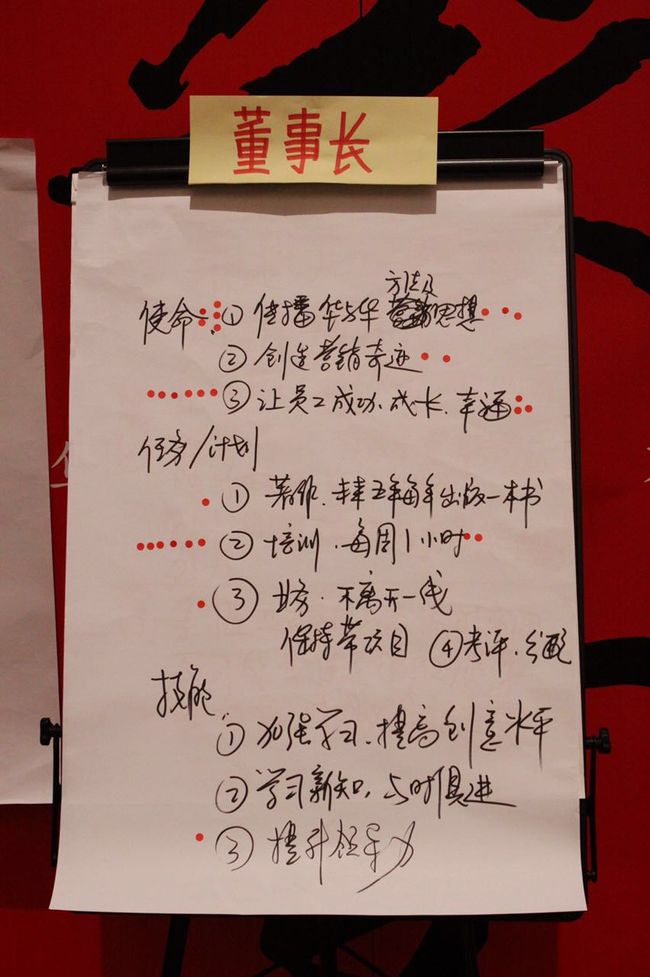 董事长
方法及
使命 ① 传播华与华思想
② 创造营销奇迹
③ 让员工成功、成长、幸福
任务/计划
① 著作、未来五年每年出版一本书
② 培训、每周1小时
③ 业务、不离开一线
保持带项目 ④考评、分配
技能
① 加强学习、提高创意水平
② 学习新知、与时俱进
③ 提升领导力